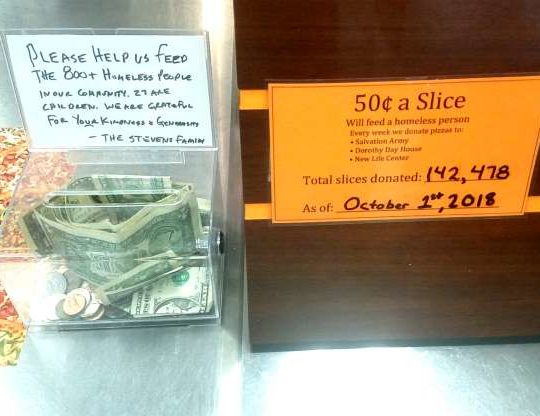 PLEASE HELP US FEED
THE 800+ HOMELESS PEOPLE
IN OUR COMMUNITY. 27 ARE
CHILDREN. WE ARE GRATEFUL
FOR YOUR KINDNESS & GENEROSITY
- THE STEVENS FAMILY
50¢ a Slice
Will feed a homeless person
Every week we donate pizzas to:
• Salvation Army
• Dorothy Day House
• New Life Center
Total slices donated: 142,478
As of: October 1st, 2018